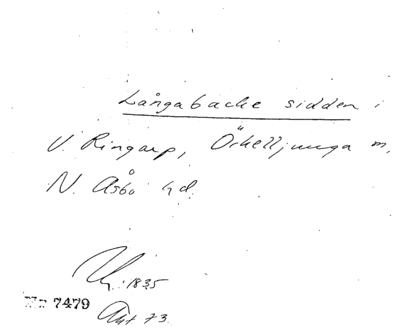 Långabacke sidden i
V. Ringarp, Örkelljunga m,
N. Åsbo hd.
1835
Nr 7479
Akt 73.